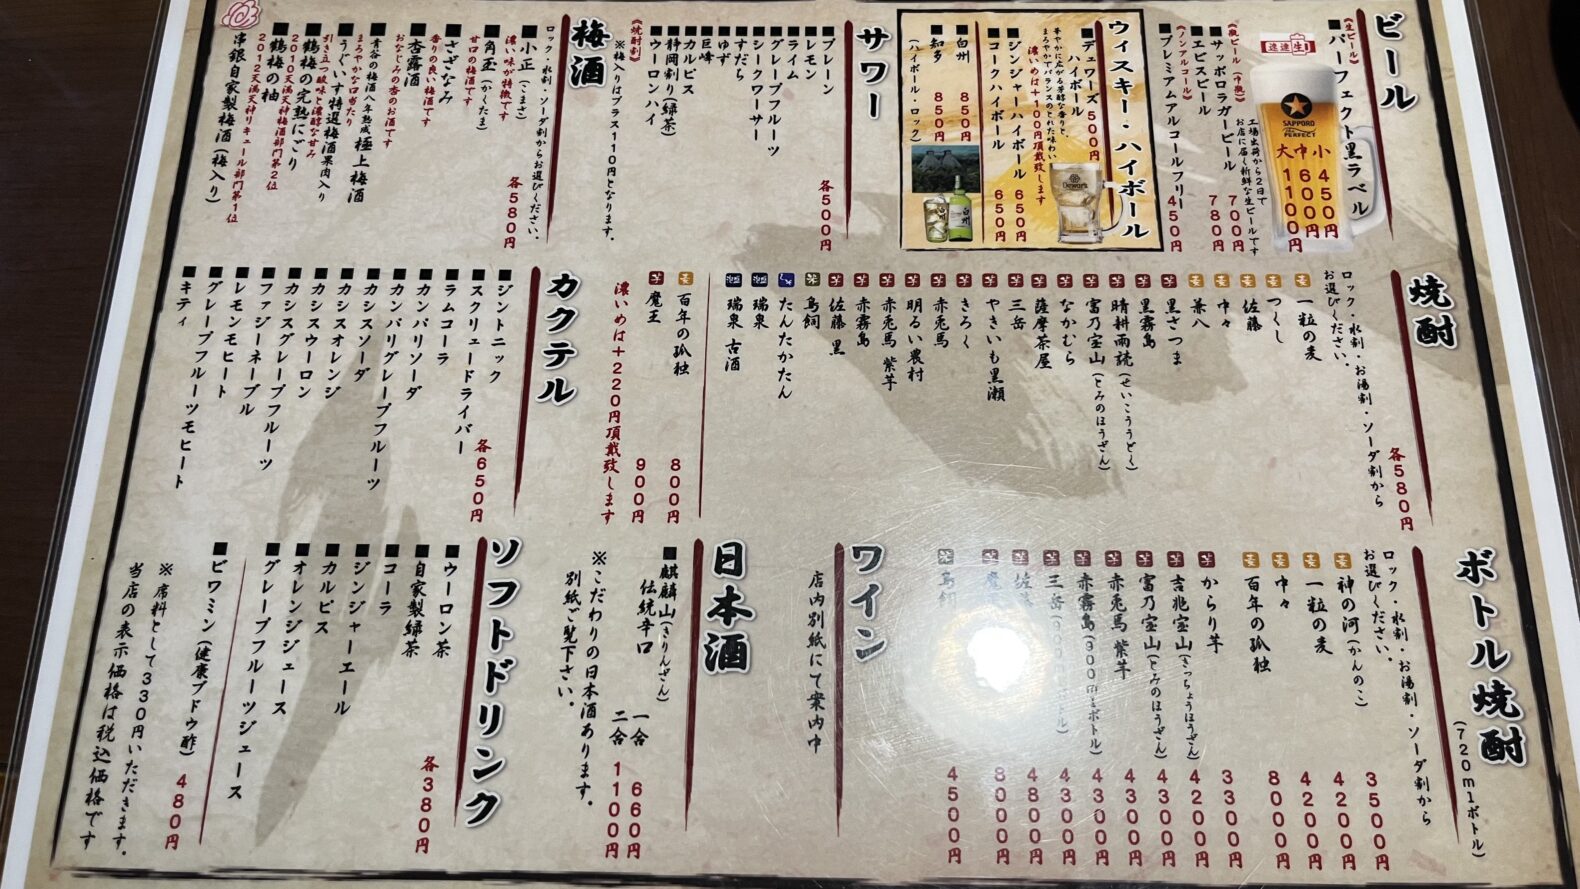 ビール
《生ビール》
■パーフェクト黒ラベル
小 450円
中 600円
大 1100円
達達生
SAPPORO
PERFECT
工場出荷から2日で
お店に届く新鮮な生ビールです
《瓶ビール(中瓶)》
■サッポロラガービール 700円
■エビスビール 780円
《ノンアルコール》
■プレミアムアルコールフリー 450円
ウィスキー・ハイボール
■デュワーズハイボール 500円
華やかに広がる芳醇な香りと、
まろやかでバランスのとれた味わい
濃いめは+100円頂戴致します
Dewar's
■ジンジャーハイボール 650円
■コークハイボール 650円
■白州 850円
■知多 850円
(ハイボール・ロック)
サワー
各500円
■プレーン
■レモン
■ライム
■グレープフルーツ
■シークワーサー
■すだち
■ゆず
■巨峰
■カルピス
■静岡割り(緑茶)
■ウーロンハイ
《焼酎割》
※梅入りはプラス110円となります。
梅酒
ロック・水割・ソーダ割からお選びください。
各580円
■小正(こまさ)
濃い味が特徴です
■角玉(かくたま)
甘口の梅酒です
■さざなみ
香りの良い梅酒です
■杏露酒
おなじみの杏のお酒です
■青谷の梅酒八年熟成 極上梅酒
まろやかな口当たり
■うぐいす特選梅酒果肉入り
引き立つ酸味と濃醇な甘み
■鶴梅の完熟にごり
2010天満天神梅酒部門第2位
■鶴梅の柚
2012天満天神リキュール部門第1位
串銀自家製梅酒(梅入り)
焼酎
ロック・水割・お湯割・ソーダ割から
お選びください。
各580円
麦 一粒の麦
麦 つくし
麦 佐藤
麦 中々
麦 兼八
芋 黒さつま
芋 黒霧島
芋 晴耕雨読(せいこううどく)
芋 富乃宝山(とみのほうざん)
芋 なかむら
芋 薩摩茶屋
芋 三岳
芋 やきいも黒瀬
芋 きろく
芋 赤兎馬
芋 明るい農村
芋 赤兎馬 紫芋
芋 赤霧島
芋 佐藤 黒
米 鳥飼
たんたかたん
瑞泉
瑞泉 古酒
麦 百年の孤独 800円
芋 魔王 900円
濃いめは+220円頂戴致します
カクテル
各650円
■ジントニック
■スクリュードライバー
■ラムコーラ
■カンパリソーダ
■カンパリグレープフルーツ
■カシスソーダ
■カシスオレンジ
■カシスウーロン
■カシスグレープフルーツ
■ファジーネーブル
■レモンモヒート
■グレープフルーツモヒート
■キティ
ボトル焼酎
(720mlボトル)
ロック・水割・お湯割・ソーダ割から
お選びください。
麦 神の河(かんのこ) 3500円
麦 一粒の麦 4200円
麦 中々 4200円
麦 百年の孤独 8000円
芋 からり芋 3300円
芋 吉兆宝山(きっちょうほうざん) 4200円
芋 富乃宝山(とみのほうざん) 4300円
芋 赤兎馬 紫芋 4300円
芋 赤霧島(900mlボトル) 4300円
芋 三岳(900mlボトル) 4300円
芋 佐藤 4800円
芋 魔 8000円
米 鳥飼 4500円
ワイン
店内別紙にて案内中
日本酒
■麒麟山(きりんざん)
伝統辛口
一合 660円
二合 1100円
※こだわりの日本酒あります。
別紙ご覧下さい。
ソフトドリンク
各380円
■ウーロン茶
■自家製緑茶
■コーラ
■ジンジャーエール
■カルピス
■オレンジジュース
■グレープフルーツジュース
■ビワミン(健康ブドウ酢) 480円
※席料として330円いただきます。
当店の表示価格は税込価格です